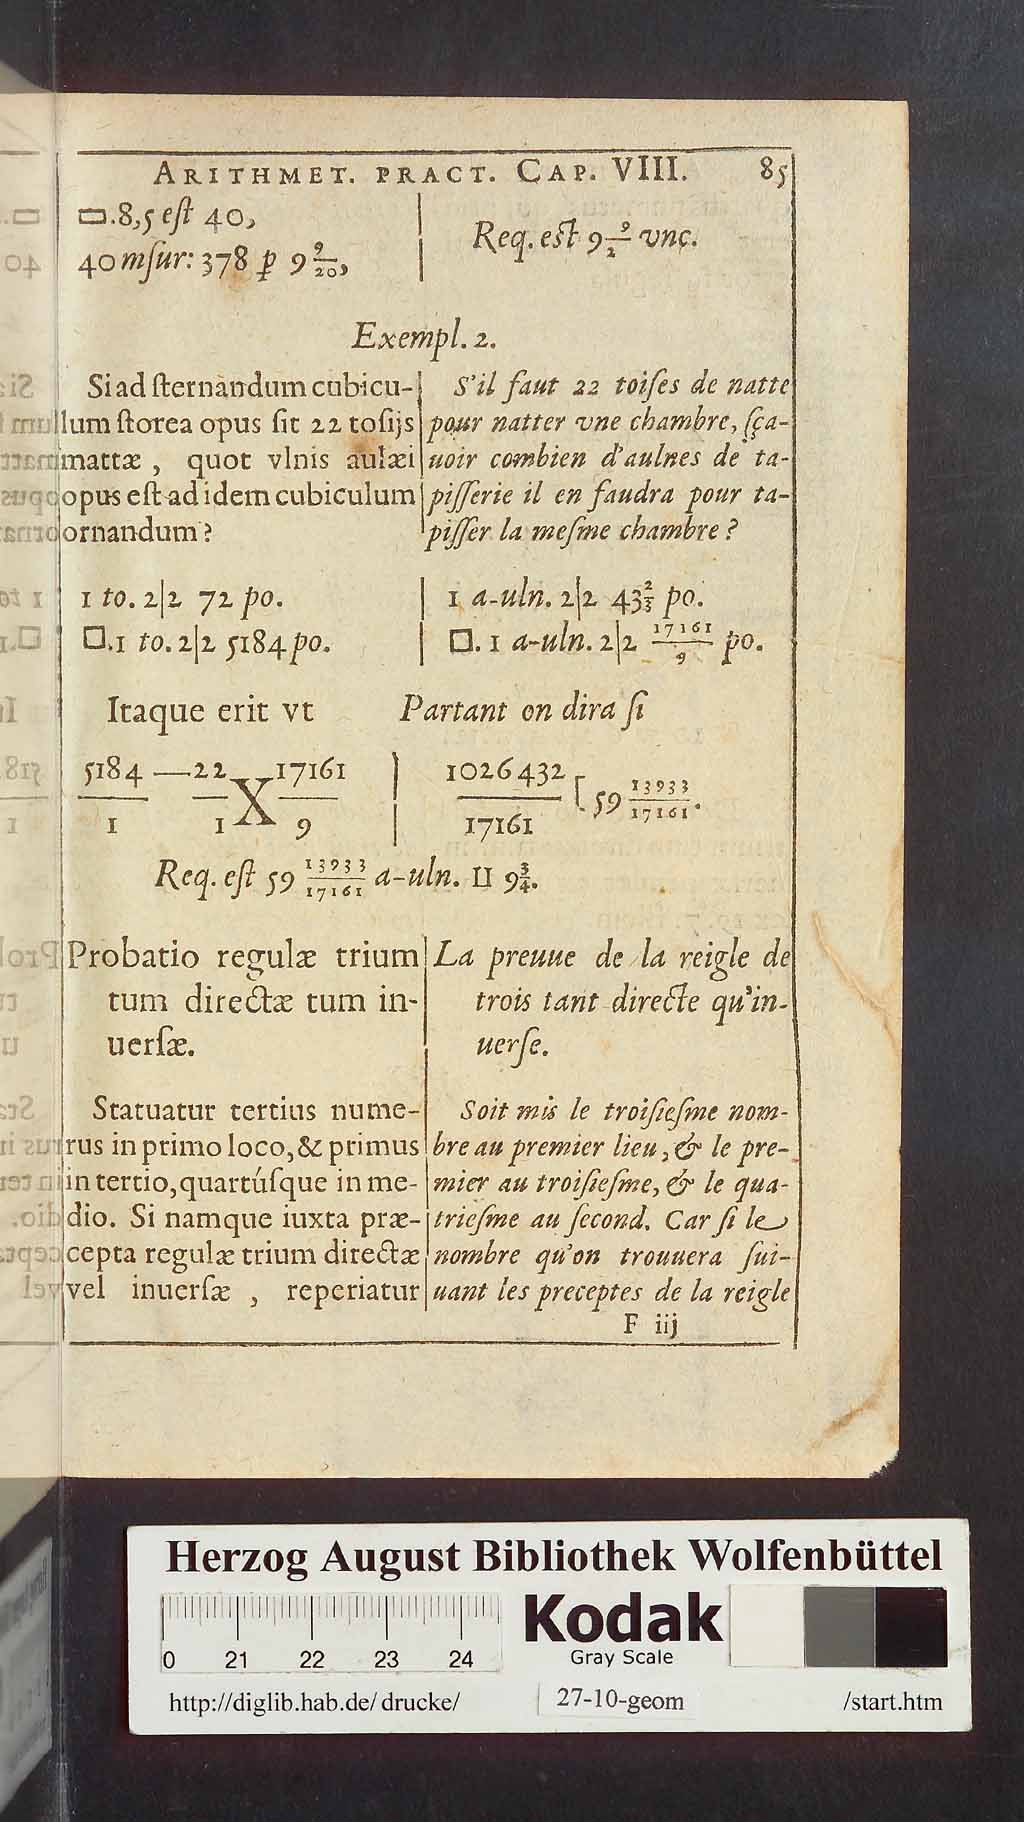 ARITHMET. PRACT. CAP. VIII. 85
▭.8,5 eſt 40,
40 mſur: 378 ꝑ 9 9/20,
Req. eſt 9 9/2 vnç.
Exempl. 2.
Si ad ſternandum cubicu-
lum ſtorea opus ſit 22 toſijs
mattæ, quot vlnis aulæi
opus eſt ad idem cubiculum
ornandum?
S'il faut 22 toiſes de natte
pour natter vne chambre, ſça-
uoir combien d'aulnes de ta-
piſſerie il en faudra pour ta-
piſſer la meſme chambre?
1 to. 2|2 72 po.
□.1 to. 2|2 5184 po.
1 a-uln. 2|2 43 2/3 po.
□. 1 a-uln. 2|2 17161/9 po.
Itaque erit vt
Partant on dira ſi
5184 — 22 17161
1 1 X 9
1026432
17161
[59 13933/17161.
Req. eſt 59 13933/17161 a-uln. II 9 3/4.
Probatio regulæ trium
tum directæ tum in-
uerſæ.
La preuue de la reigle de
trois tant directe qu'in-
uerſe.
Statuatur tertius nume-
rus in primo loco, & primus
in tertio, quartúſque in me-
dio. Si namque iuxta præ-
cepta regulæ trium directæ
vel inuerſæ, reperiatur
Soit mis le troiſieſme nom-
bre au premier lieu, & le pre-
mier au troiſieſme, & le qua-
trieſme au ſecond. Car ſi le
nombre qu'on trouuera ſui-
uant les preceptes de la reigle
F iij
Herzog August Bibliothek Wolfenbüttel
0 21 22 23 24
Kodak
Gray Scale
http://diglib.hab.de/drucke/ 27-10-geom /start.htm